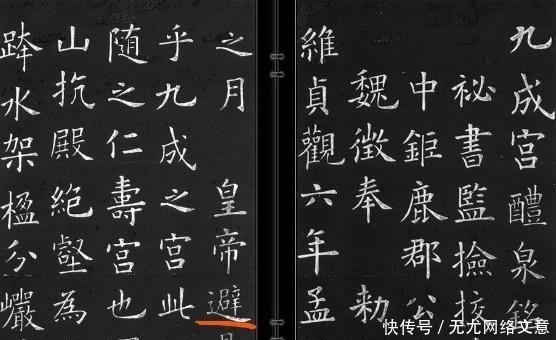 九成宫醴泉銘
祕書監撿挍
中鉅鹿郡公
魏徵奉 勑
維貞觀六年孟
之月 皇帝避
乎九成之宫此
随之仁壽宫也
山抗殿絶壑為
跨水架楹分巖
快传号 / 无尤网络文意